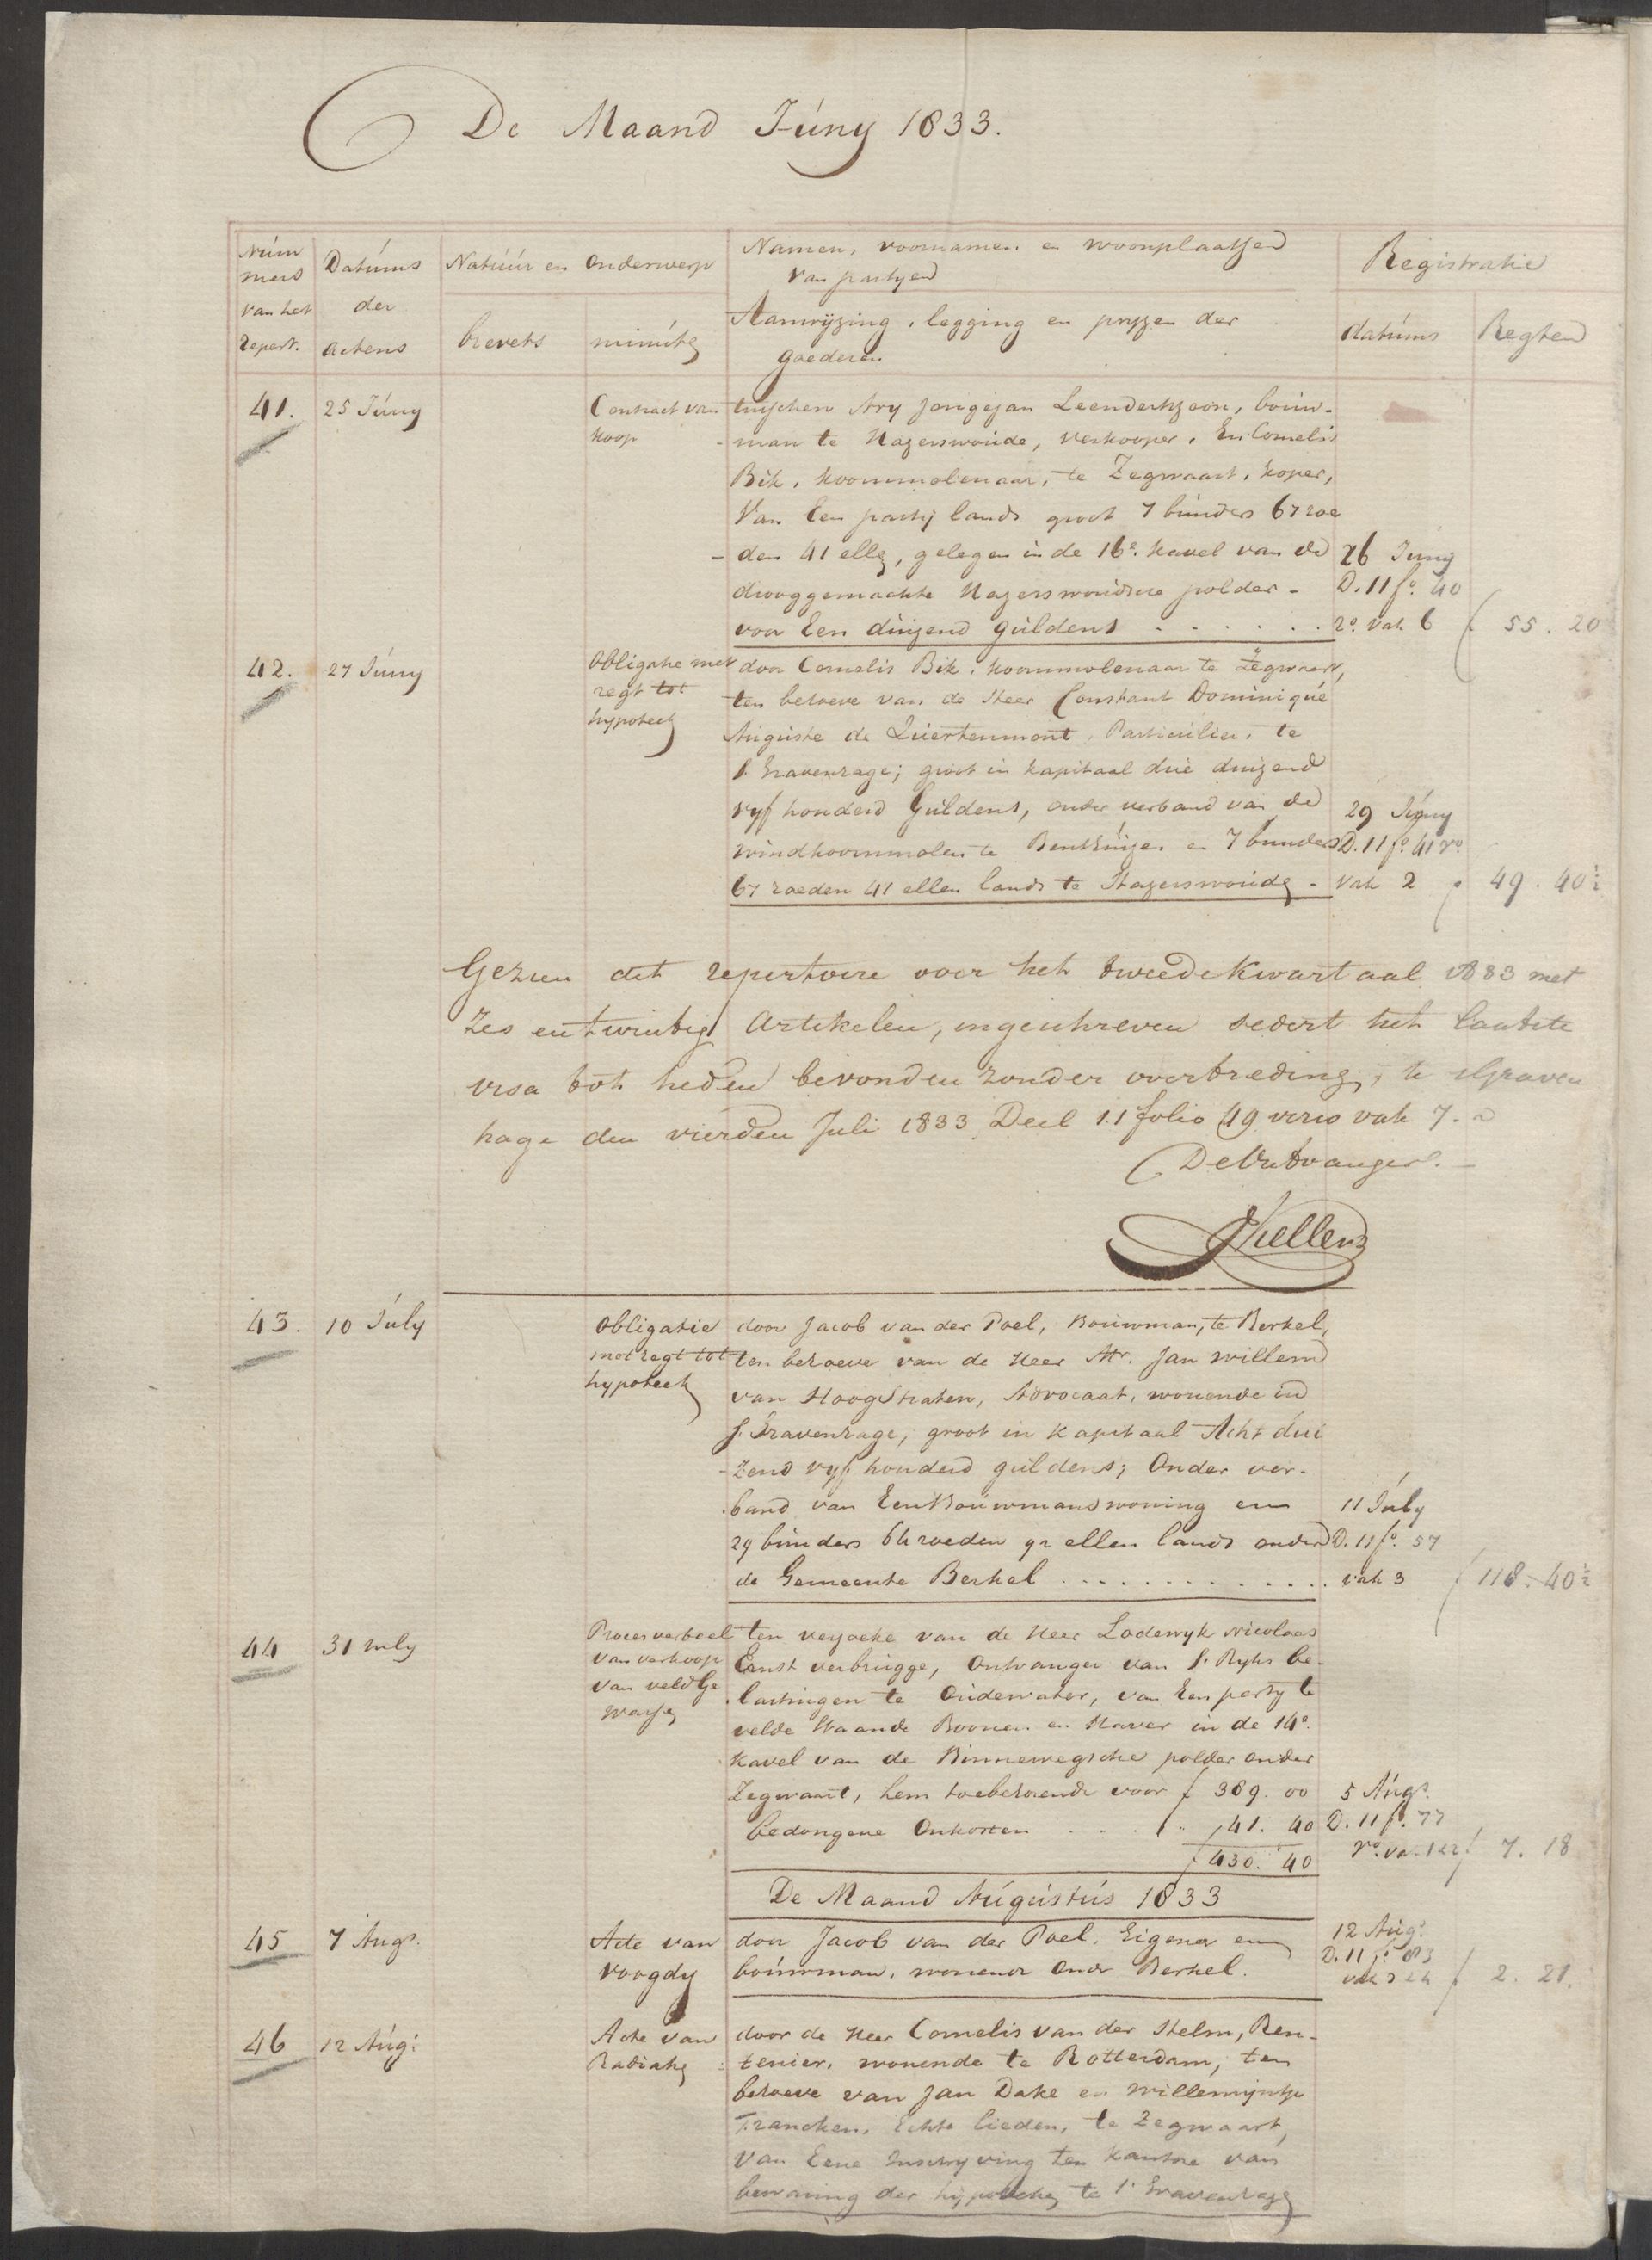 De Maand Júny 1833.
Núm Datúms Natúúr en Onderwerp Namen, voornamen en woonplaatsen Registratie
mers van partyen
van het der Aanwijzing, legging en pryzen der
repert. actens brevets minúte goederen datúms Regten
41. 25 Júny Contract van tusschen Ary Jongejan Leendertszoon, boúw-
koop man te Hazerswoúde, verkooper, En Cornelis
Bik, koornmolenaar, te Zegwaart, koper,
Van Een partij lands groot 7 búnders 67 roe
den 41 elle, gelegen in de 16e. kavel van de 26 Júny
drooggemaakte Hazerswoúdsche polder - D. 11 fo. 40
voor Een duizend gúldens . . . . . . ro. vak 6 f 55. 20
42. 27 Júny Obligatie met door Cornelis Bik, koornmolenaar te Zegwaart,
regt tot ten behoeve van de Heer Constant Dominiqúe
hypoteek Aúguste de Quertenmont, Particúlier, te
s Gravenhage; groot in kapitaal drie duizend
vyf honderd Gúldens, onder verband van de 29 Júny
windkoornmolen te Benthúizen en 7 bunders D. 11 fo. 41 vo.
67 roeden 41 ellen lands te Hazerswoúde - vak 2 f 49. 40½
Gezien dit repertoire over het tweede Kwartaal 1833 met
Zes en twintig artikelen, ingeschreven sedert het laatste
visa tot heden bevonden zonder overtreding, te sGraven
hage den vierden Juli 1833 Deel 11 folio 49 verso vak 7.
De Ontvanger.
43. 10 July Obligatie door Jacob van der Poel, Bouwman, te Berkel,
met regt tot ten behoeve van de Heer Mr. Jan Willem
hypoteek van Hoogstraten, Advocaat, wonende in
s. Gravenhage; groot in kapitaal Acht dui
zend vyf honderd gúldens; Onder ver-
band van Een Boúwmanswoning en 11 Júly
29 búnders 64 roeden 92 ellen lands onder D. 11 fo. 57
de Gemeente Berkel . . . . . . . . . . . . vak 3 f 118. 40½
44 31 July Proces verbael ten verzoeke van de Heer Lodewyk Nicolaas
van verkoop Ernst verbrúgge, Ontvanger van s. Ryks be-
van veldge lastingen te Oúdewater, van Een party te
wasse velde Staande Boonen en Haver in de 14e.
kavel van de Binnewegsche polder onder
Zegwaart, hem toebehorende voor f 389. 00 5 Aúgs.
bedongene Onkosten . . . . " 41. 40 D. 11 fo. 77
f 430. 40 vo. vak 1 en 2 f 7. 18
De Maand Aúgústús 1833
45 7 Augs. Acte van door Jacob van der Poel, Eigenaar en 12 Aúgs.
voogdy boúwman, wonende onder Berkel. D. 11 fo. 83
f 2. 21.
46 12 Aúgs. Acte van door de Heer Cornelis van der Helm, Ren-
Radiatie tenier, wonende te Rotterdam, ten
behoeve van Jan Dake en Willemijntje
Francken, Echte lieden, te Zegwaart,
Van Eene Inschryving ten kantore van
bewaring der hypotheke te s' Gravenhage